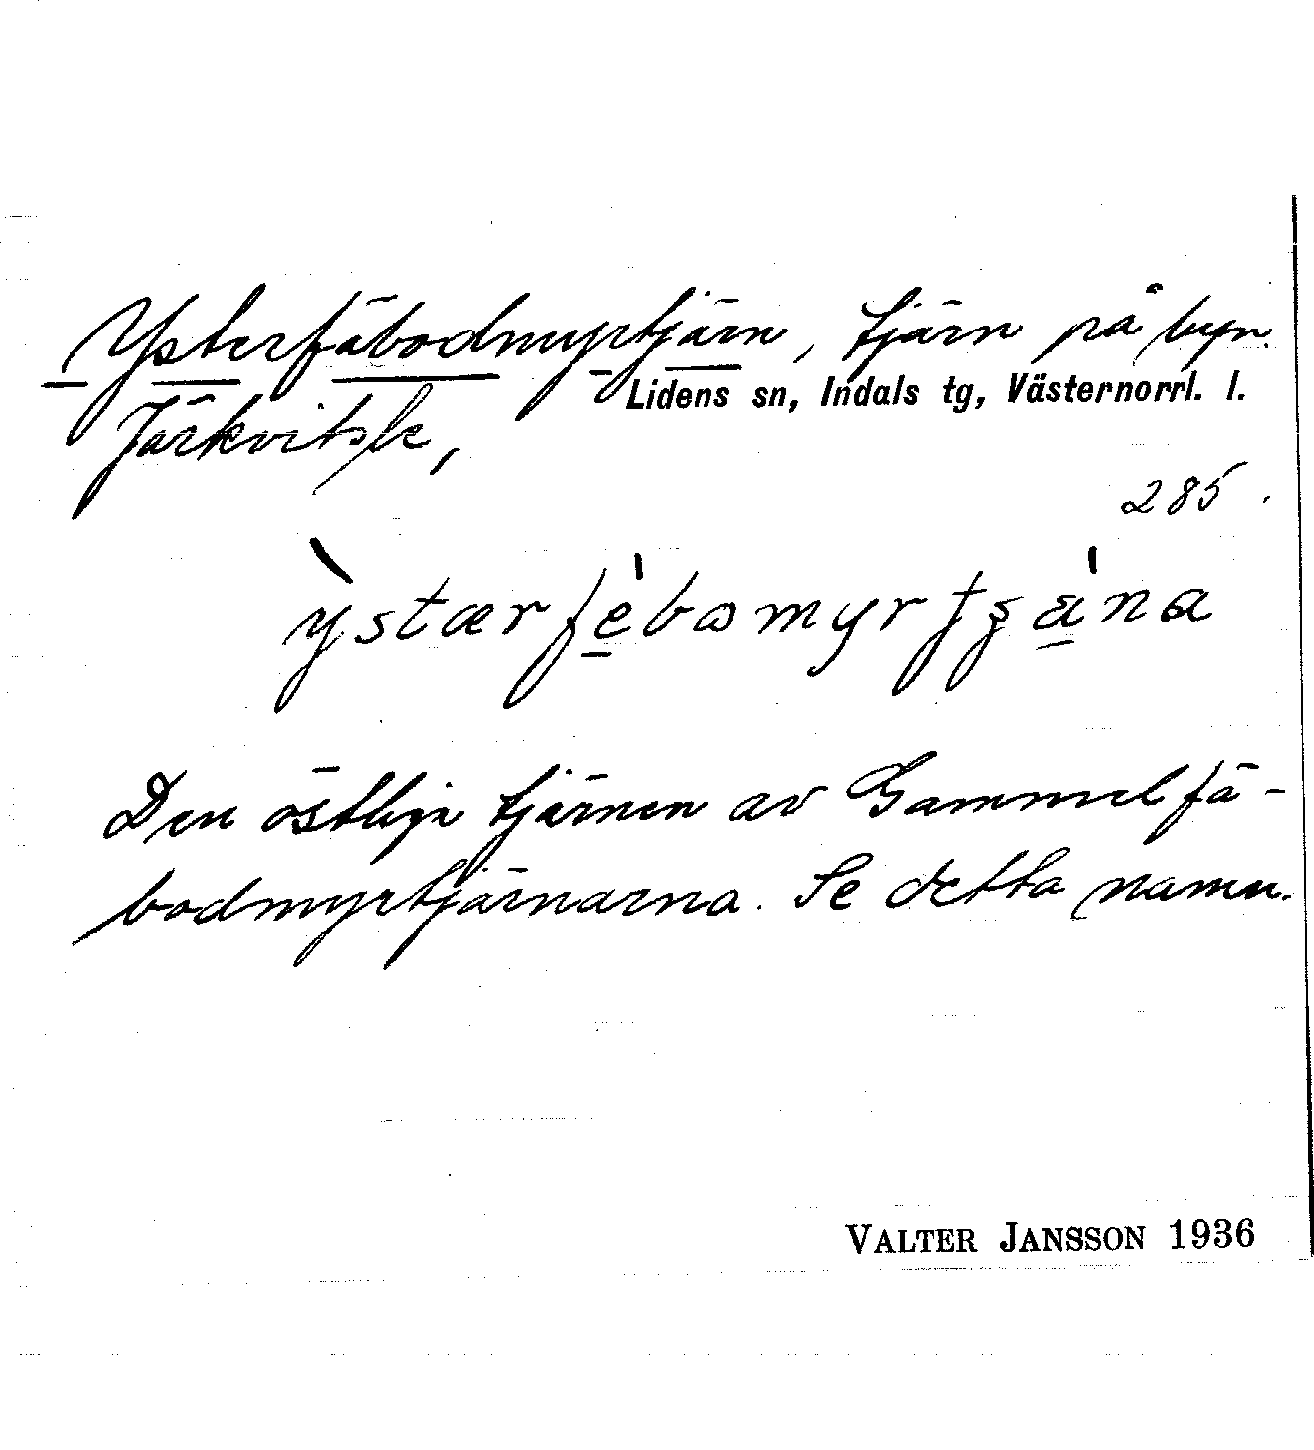 Ysterfäbodmyrtjärn, tjärn på byn.
Lidens sn, Indals tg, Västernorrl. l.
Järkvitsle,
285.
ỳstærfèbωmyrtʂäna
Den östliga tjärnen av Gammelfä-
bodmyrtjärnarna. Se detta namn.
VALTER JANSSON 1936